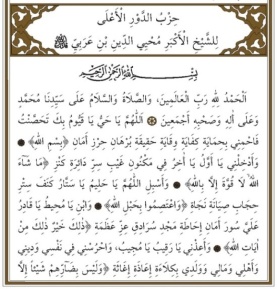 حِزْبُ الدَّوْرِ الْأَعْلَى
لِلشَّيْخِ الْأَكْبَرِ مُحْيِي الدِّينِ بْنِ عَرَبِيّ
بِسْمِ اللهِ الرَّحْمَنِ الرَّحِيمِ
الْحَمْدُ لِلَّهِ رَبِّ الْعَالَمِينَ، وَالصَّلَاةُ وَالسَّلَامُ عَلَى سَيِّدِنَا مُحَمَّدٍ
وَعَلَى آلِهِ وَصَحْبِهِ أَجْمَعِينَ اللَّهُمَّ يَا حَيُّ يَا قَيُّومُ بِكَ تَحَصَّنْتُ
فَاحْمِنِي بِحِمَايَةِ كِفَايَةِ وِقَايَةِ حَقِيقَةِ بُرْهَانِ حِرْزِ أَمَانِ ﴿بِسْمِ اللهِ﴾
وَأَدْخِلْنِي يَا أَوَّلُ يَا آخِرُ فِي مَكْنُونِ غَيْبِ سِرِّ دَائِرَةِ كَنْزِ ﴿مَا شَاءَ
اللهُ لَا قُوَّةَ إِلَّا بِاللهِ﴾ وَأَسْبِلِ اللَّهُمَّ يَا حَلِيمُ يَا سَتَّارُ كَنَفَ سِتْرِ
حِجَابِ صِيَانَةِ نَجَاةِ ﴿وَاعْتَصِمُوا بِحَبْلِ اللهِ﴾ وَابْنِ يَا مُحِيطُ يَا قَادِرُ
عَلَيَّ سُورَ أَمَانِ إِحَاطَةِ مَجْدِ سُرَادِقِ عِزِّ عَظَمَةِ ﴿ذَلِكَ خَيْرٌ ذَلِكَ مِنْ
آيَاتِ اللهِ﴾ وَأَعِذْنِي يَا رَقِيبُ يَا مُجِيبُ، وَاحْرُسْنِي فِي نَفْسِي وَدِينِي
وَأَهْلِي وَمَالِي وَوَلَدِي بِكِلَاءَةِ إِعَاذَةِ إِغَاثَةِ ﴿وَلَيْسَ بِضَارِّهِمْ شَيْئًا إِلَّا